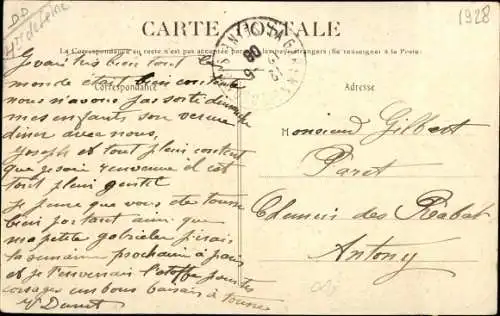 DD
1928
CARTE POSTALE
La Correspondance au recto n'est pas acceptée par tous les pays étrangers (Se renseigner à la Poste)
Correspondance
Adresse
Je vais bien tout le
monde était bien content
nous n'avons pas sortie dimanche
mes enfants son venue
diner avec nous,
Joseph et tout plein content
que je soir revenue il est
tout plein gentil
Je pense que vous de
bien portant ainsi que
ma petite gabriele
la semaine prochain à paris
et je t'envenais l'etoffe pour tes
corsages un bons baisais à tousse
Monsieur Gilbert
Paret
Chemin des Rabats
Antony